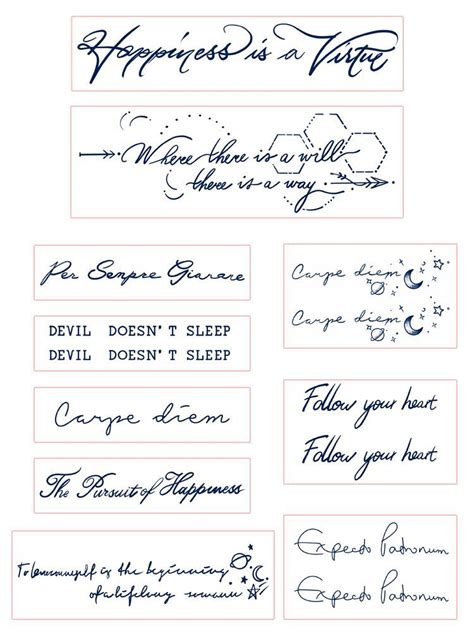 Happiness is a Virtue
Where there is a will
there is a way
Per Sempre Giarare
Carpe diem
Carpe diem
DEVIL DOESN'T SLEEP
DEVIL DOESN'T SLEEP
Carpe diem
Follow your heart
Follow your heart
The Pursuit of Happiness
is the beginning
of a lifelong
Expecto Patronum
Expecto Patronum